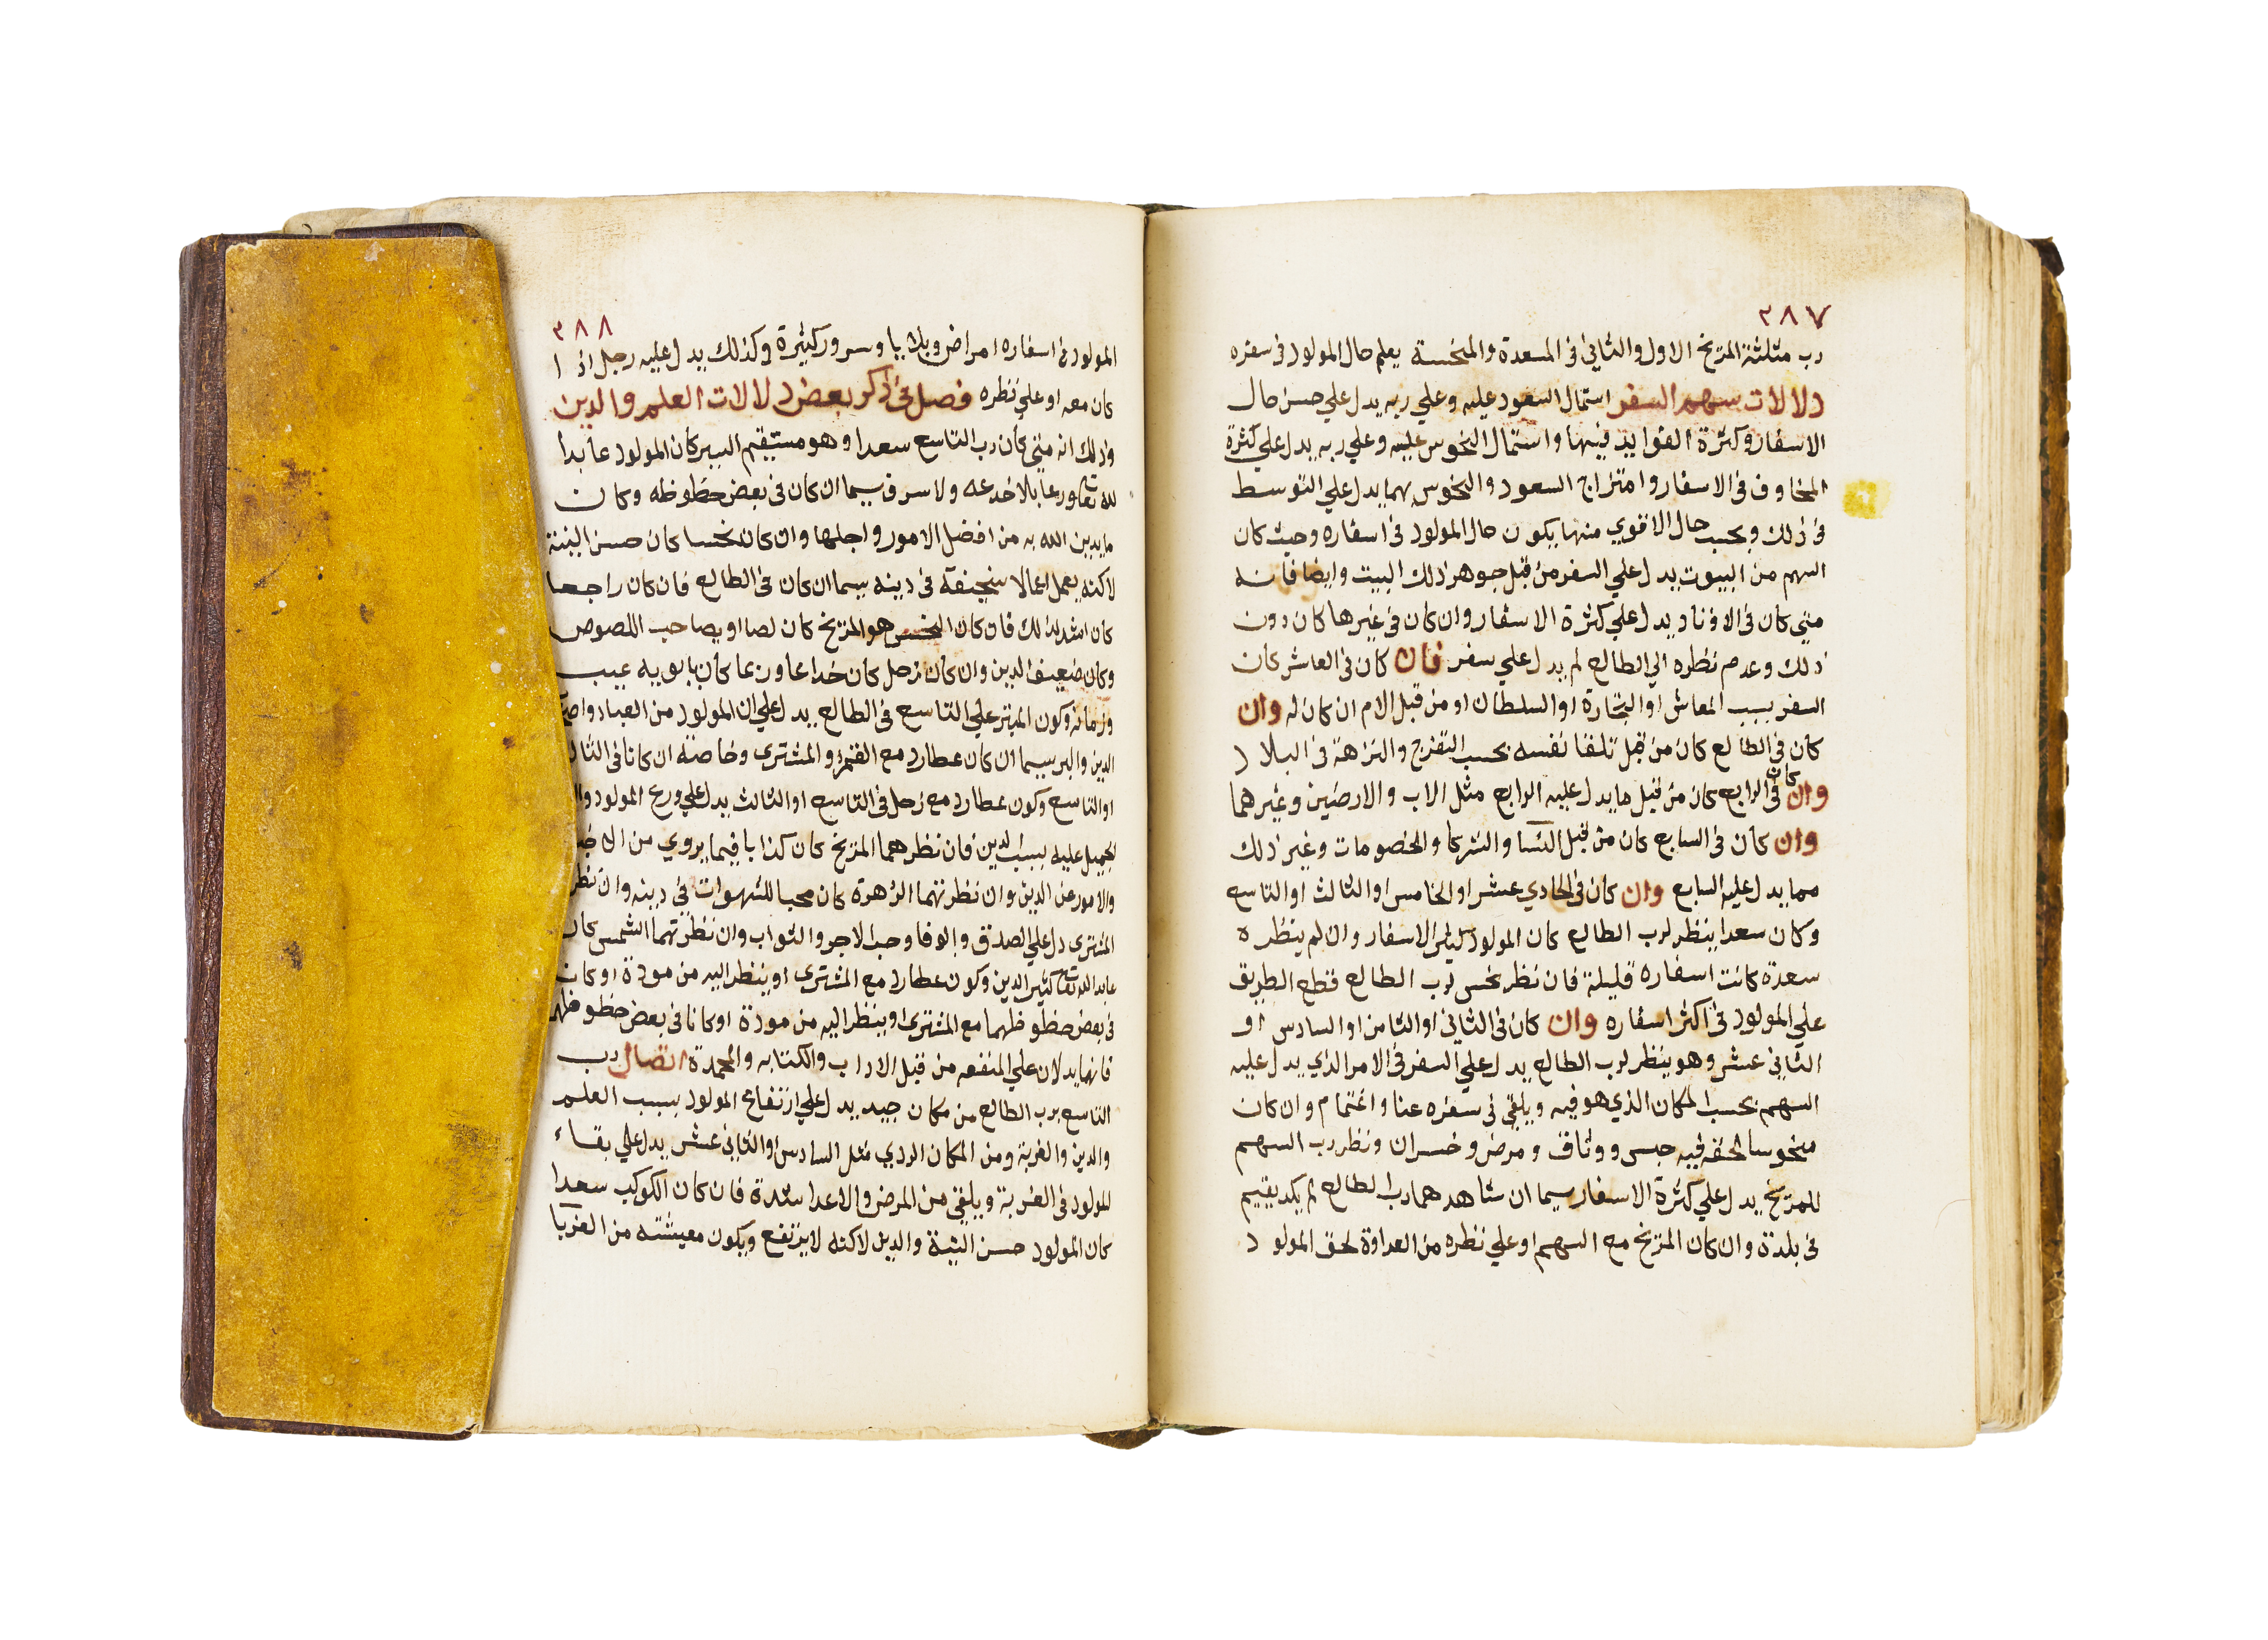 ٣٨٧
رب مثلثة المريخ الاول والثاني في المسعدة والمنحسة يعلم حال المولود في سفره
دلالات سهم السفر استمال السعود عليه وعلي ربه يدل علي حسن حال
الاسفار وكثرة الفوايد فيها واستمال النحوس عليه وعلي ربه يدل علي كثرة
المخاوف في الاسفار وامتزاج السعود والنحوس بهما يدل علي التوسط
في ذلك وبحسب حال الاقوي منها يكون حال المولود في اسفاره وحيث كان
السهم من البيوت يدل علي السفر من قبل جوهر ذلك البيت وايضا فانه
متي كان في الاوتاد يدل علي كثرة الاسفار وان كان في غيرها كان دون
ذلك وعدم نظره الي الطالع لم يدل علي سفر فان كان في العاشر كان
السفر بسبب المعاش او التجارة او السلطان او من قبل الام ان كان له وان
كان في الطالع كان من قبل تلقا نفسه بحسب التفرج والنزاهة في البلاد
وان كان في الرابع كان من قبل ما يدل عليه الرابع مثل الاب والارضين وغيرهما
وان كان في السابع كان من قبل النسا والشركا والخصومات وغير ذلك
مما يدل عليه السابع وان كان في الحادي عشر او الخامس او الثالث او التاسع
وكان سعدا ينظر لرب الطالع كان المولود كثير الاسفار وان لم ينظره
سعدة كانت اسفاره قليلة فان نظر نحس لرب الطالع قطع الطريق
علي المولود في اكثر اسفاره وان كان في الثاني او الثامن او السادس او
الثاني عشر وهو ينظر لرب الطالع يدل علي السفر في الامر الذي يدل عليه
السهم بحسب المكان الذي هو فيه ويلقي في سفره عنا واغتمام وان كان
منحوسا لحقه فيه حبس ووثاق ومرض وخسران ونظر رب السهم
للمريخ يدل علي كثرة الاسفار سيما ان شاهدهما رب الطالع لم يكد يقيم
في بلدة وان كان المريخ مع السهم او علي نظره من العداوة لحق المولود
٣٨٨
المولود في اسفاره امراض وبلايا وسرور كثيرة وكذلك يدل عليه رجل اذا
كان معه او علي نظره فصل في ذكر بعض دلالات العلم والدين
وذلك انه متي كان رب التاسع سعدا وهو مستقيم السير كان المولود عابدا
لله تعا ورعا بلا خدعه ولا سرف سيما ان كان في بعض حظوظه وكان
ما يدين الله به من افضل الامور واجلها وان كان نحسا كان حسن النية
لاكنه يعمل اعمالا سخيفة في دينه سيما ان كان في الطالع فان كان راجعا
كان اشد لذلك فان كان النحس هو المريخ كان لصا او يصاحب اللصوص
وكان ضعيف الدين وان كان زحل كان خداعا وربما كان بابويه عيب
وزمانة وكون المبتز علي التاسع في الطالع يدل علي ان المولود من العباد
الدين والبر سيما ان كان عطارد مع القمر او المشتري وخاصة ان كانا في
او التاسع وكون عطارد مع زحل في التاسع او الثالث يدل علي ورع المولود
الجميل عليه بسبب الدين فان نظرهما المريخ كان كذابا فيما يروي من
والامور عن الدين وان نظرتهما الزهرة كان محبا للشهوات في دينه وان نظر
المشتري دل علي الصدق والوفا وحب الاجر والثواب وان نظرتهما الشمس كان
عابد الله تعا كثير الدين وكون عطارد مع المشتري او ينظر اليه من مودة او كان
في بعض حظوظهما مع المشتري او ينظر اليه من مودة او كانا في بعض حظوظهما
فانهما يدلان علي المنفعه من قبل الاداب والكتابه والمحمدة اتصال رب
التاسع برب الطالع من مكان جيد يدل علي ارتفاع المولود بسبب العلم
والدين والغربة ومن المكان الردي مثل السادس او الثاني عشر يدل علي بقاء
المولود في الغربة ويلقي من المرض والاعدا شدة فان كان الكوكب سعدا
كان المولود حسن النية والدين لاكنه لا يرتفع ويكون معيشته من الغربا